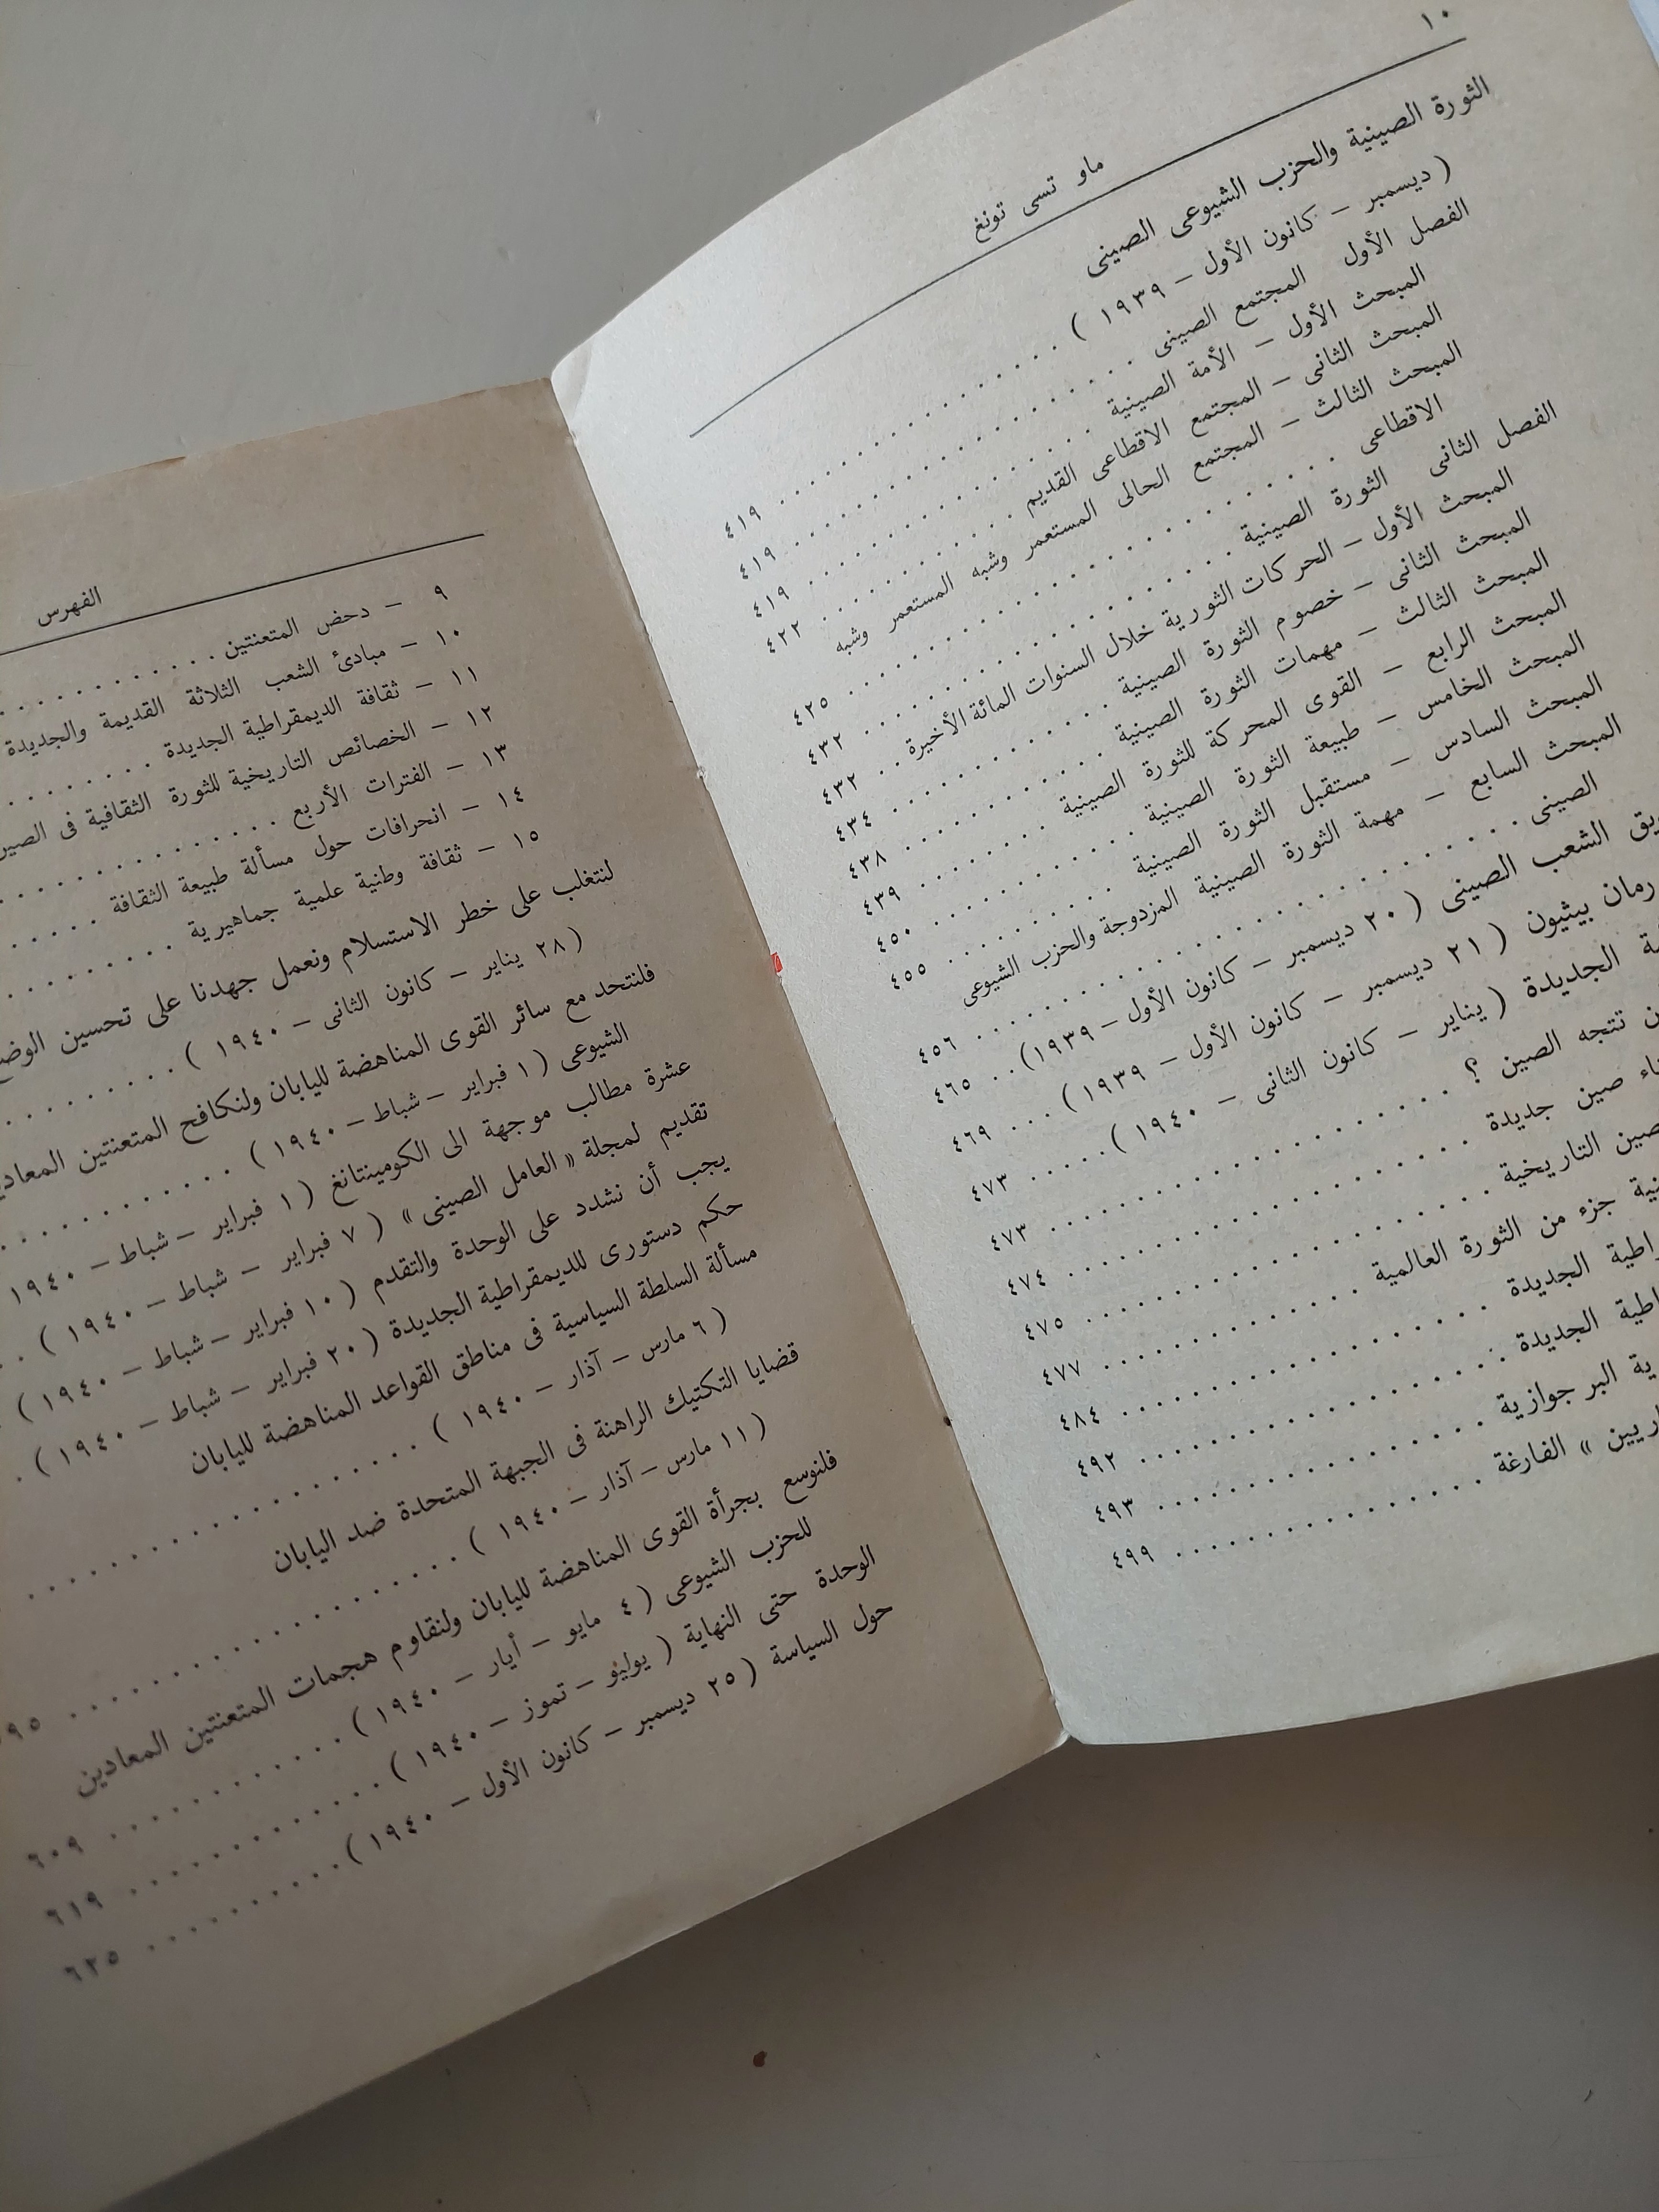 ١٠
ماو تسى تونغ
الثورة الصينية والحزب الشيوعى الصينى
( ديسمبر – كانون الأول – ١٩٣٩ ) . . . . . . . . . . . . . . . . ٤١٩
الفصل الأول المجتمع الصينى . . . . . . . . . . . . . . . . ٤١٩
المبحث الأول – الأمة الصينية . . . . . . . . . . . . . . ٤١٩
المبحث الثانى – المجتمع الاقطاعى القديم . . . . . . . . . . ٤٢٢
المبحث الثالث – المجتمع الحالى المستعمر وشبه المستعمر وشبه
الاقطاعى . . . . . . . . . . . . . . . . . . . . ٤٢٥
الفصل الثانى الثورة الصينية . . . . . . . . . . . . . . . . ٤٣٢
المبحث الأول – الحركات الثورية خلال السنوات المائة الأخيرة . . ٤٣٢
المبحث الثانى – خصوم الثورة الصينية . . . . . . . . . . ٤٣٤
المبحث الثالث – مهمات الثورة الصينية . . . . . . . . . . ٤٣٨
المبحث الرابع – القوى المحركة للثورة الصينية . . . . . . . . ٤٣٩
المبحث الخامس – طبيعة الثورة الصينية . . . . . . . . . . ٤٥٠
المبحث السادس – مستقبل الثورة الصينية . . . . . . . . . ٤٥٥
المبحث السابع – مهمة الثورة الصينية المزدوجة والحزب الشيوعى
الصينى . . . . . . . . . . . . . . . . . . . . ٤٥٦
الشعب الصينى ( ٢٠ ديسمبر – كانون الأول – ١٩٣٩) . . ٤٦٥
بيثيون ( ٢١ ديسمبر – كانون الأول – ١٩٣٩ ) . . . ٤٦٩
الجديدة ( يناير – كانون الثانى – ١٩٤٠ ) . . . . . ٤٧٣
تتجه الصين ؟ . . . . . . . . . . . . . . . . . . ٤٧٣
صين جديدة . . . . . . . . . . . . . . . . . . ٤٧٤
التاريخية . . . . . . . . . . . . . . . . . . ٤٧٥
جزء من الثورة العالمية . . . . . . . . . . . . ٤٧٧
الجديدة . . . . . . . . . . . . . . . . . ٤٨٤
الجديدة . . . . . . . . . . . . . . . . . ٤٩٢
البرجوازية . . . . . . . . . . . . . . . . ٤٩٣
» الفارغة . . . . . . . . . . . . . . . ٤٩٩
الفهرس
٩ – دحض المتعنتين . . . . . . . . .
١٠ – مبادئ الشعب الثلاثة القديمة والجديدة
١١ – ثقافة الديمقراطية الجديدة . . . . . . .
١٢ – الخصائص التاريخية للثورة الثقافية فى
١٣ – الفترات الأربع . . . . . . . . . . . .
١٤ – انحرافات حول مسألة طبيعة الثقافة . . . . .
١٥ – ثقافة وطنية علمية جماهيرية . . . . . . . .
لنتغلب على خطر الاستسلام ونعمل جهدنا على تحسين
( ٢٨ يناير – كانون الثانى – ١٩٤٠ ) . . . . . . . .
فلنتحد مع سائر القوى المناهضة لليابان ولنكافح المتعنتين
الشيوعى ( ١ فبراير – شباط – ١٩٤٠ ) . . . . . . . . .
عشرة مطالب موجهة الى الكومينتانغ ( ١ فبراير – شباط – ١٩٤٠
تقديم لمجلة « العامل الصينى » ( ٧ فبراير – شباط – ١٩٤٠ ) . .
يجب أن نشدد على الوحدة والتقدم ( ١٠ فبراير – شباط – ١٩٤٠ )
حكم دستورى للديمقراطية الجديدة ( ٢٠ فبراير – شباط – ١٩٤٠ ) .
مسألة السلطة السياسية فى مناطق القواعد المناهضة لليابان
( ٦ مارس – آذار – ١٩٤٠ ) . . . . . . . . . . . . . .
قضايا التكتيك الراهنة فى الجبهة المتحدة ضد اليابان
( ١١ مارس – آذار – ١٩٤٠ ) . . . . . . . . . . . . . . ٩٥
فلنوسع بجرأة القوى المناهضة لليابان ولنقاوم هجمات المتعنتين المعادين
للحزب الشيوعى ( ٤ مايو – أيار – ١٩٤٠ ) . . . . . . . . . ٦٠٩
الوحدة حتى النهاية ( يوليو – تموز – ١٩٤٠ ) . . . . . . . . . ٦١٩
حول السياسة ( ٢٥ ديسمبر – كانون الأول – ١٩٤٠ ) . . . . . . . ٦٢٥